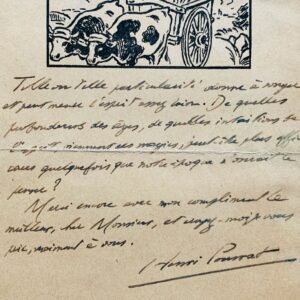 Telle ou telle particularité donne à songer
et peut mener l'esprit assez loin. De quelles
profondeurs des âges, de quelles intuitions de
l'esprit viennent ces magies, peut-être plus effi
caces quelquefois que notre époque n'oserait le
penser ?
Merci encore avec mon compliment le
meilleur, cher Monsieur, et croyez-moi je vous
prie, vraiment à vous.
Henri Pourrat